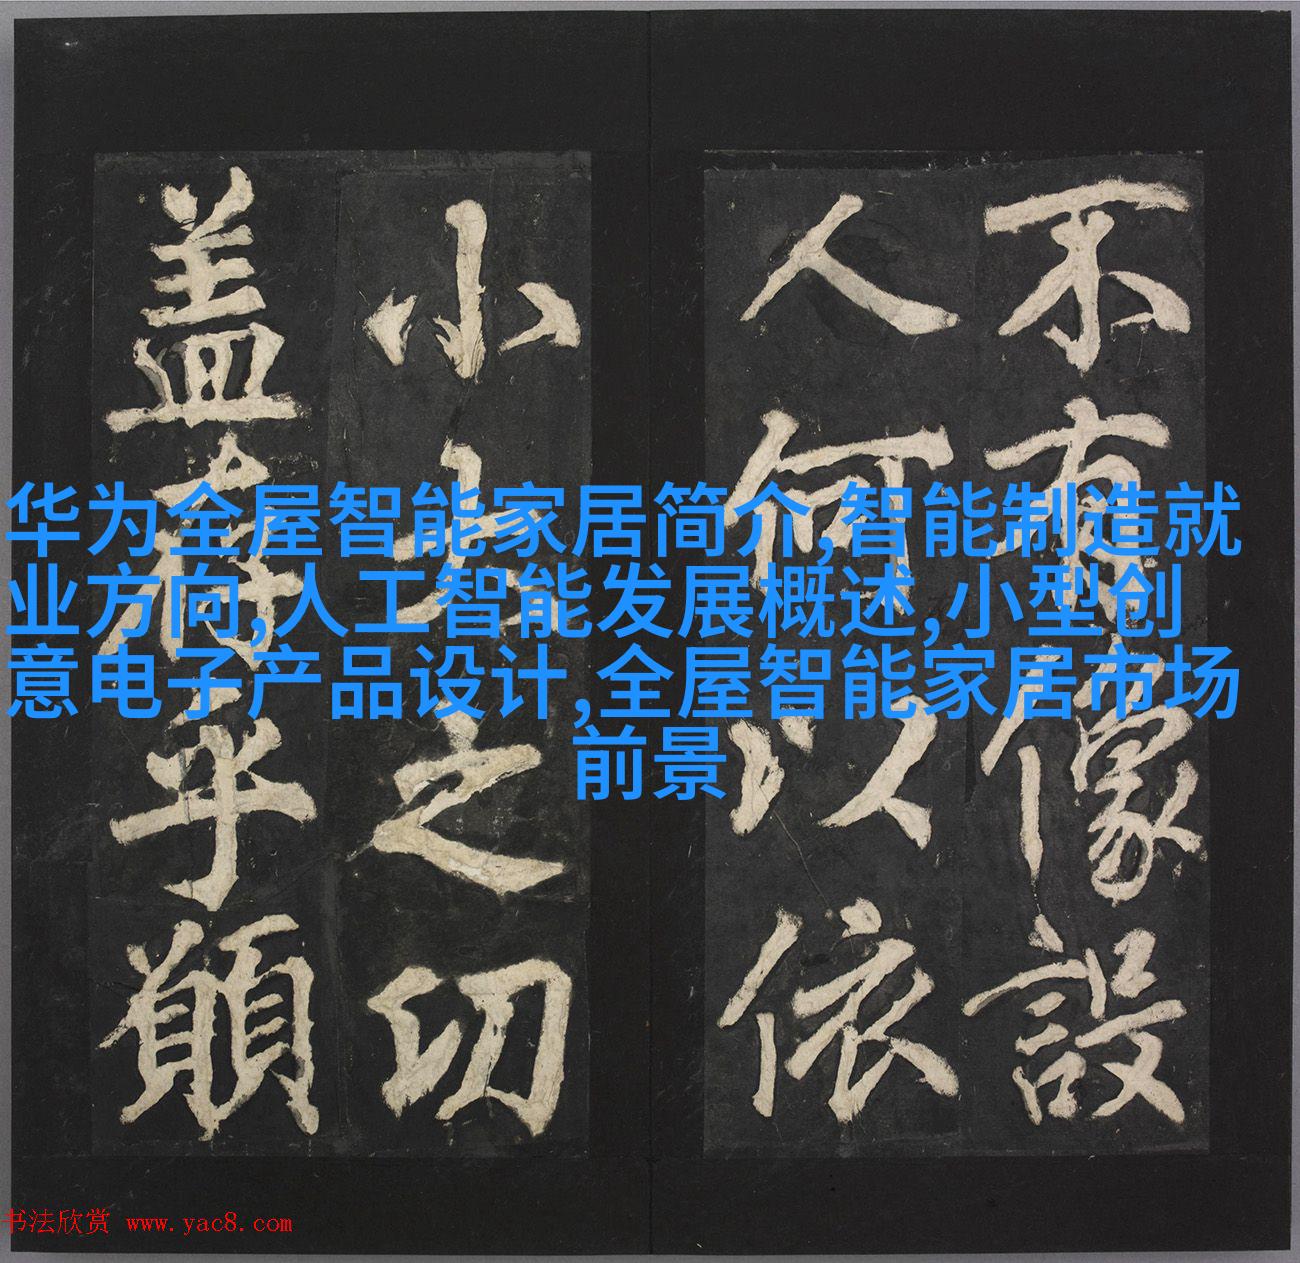 不有像設
人何以依
小大之切
盖存乎願
华为全屋智能家居简介,智能制造就
业方向,人工智能发展概述,小型创
意电子产品设计,全屋智能家居市场
前景
书法欣赏 www.yac8.com